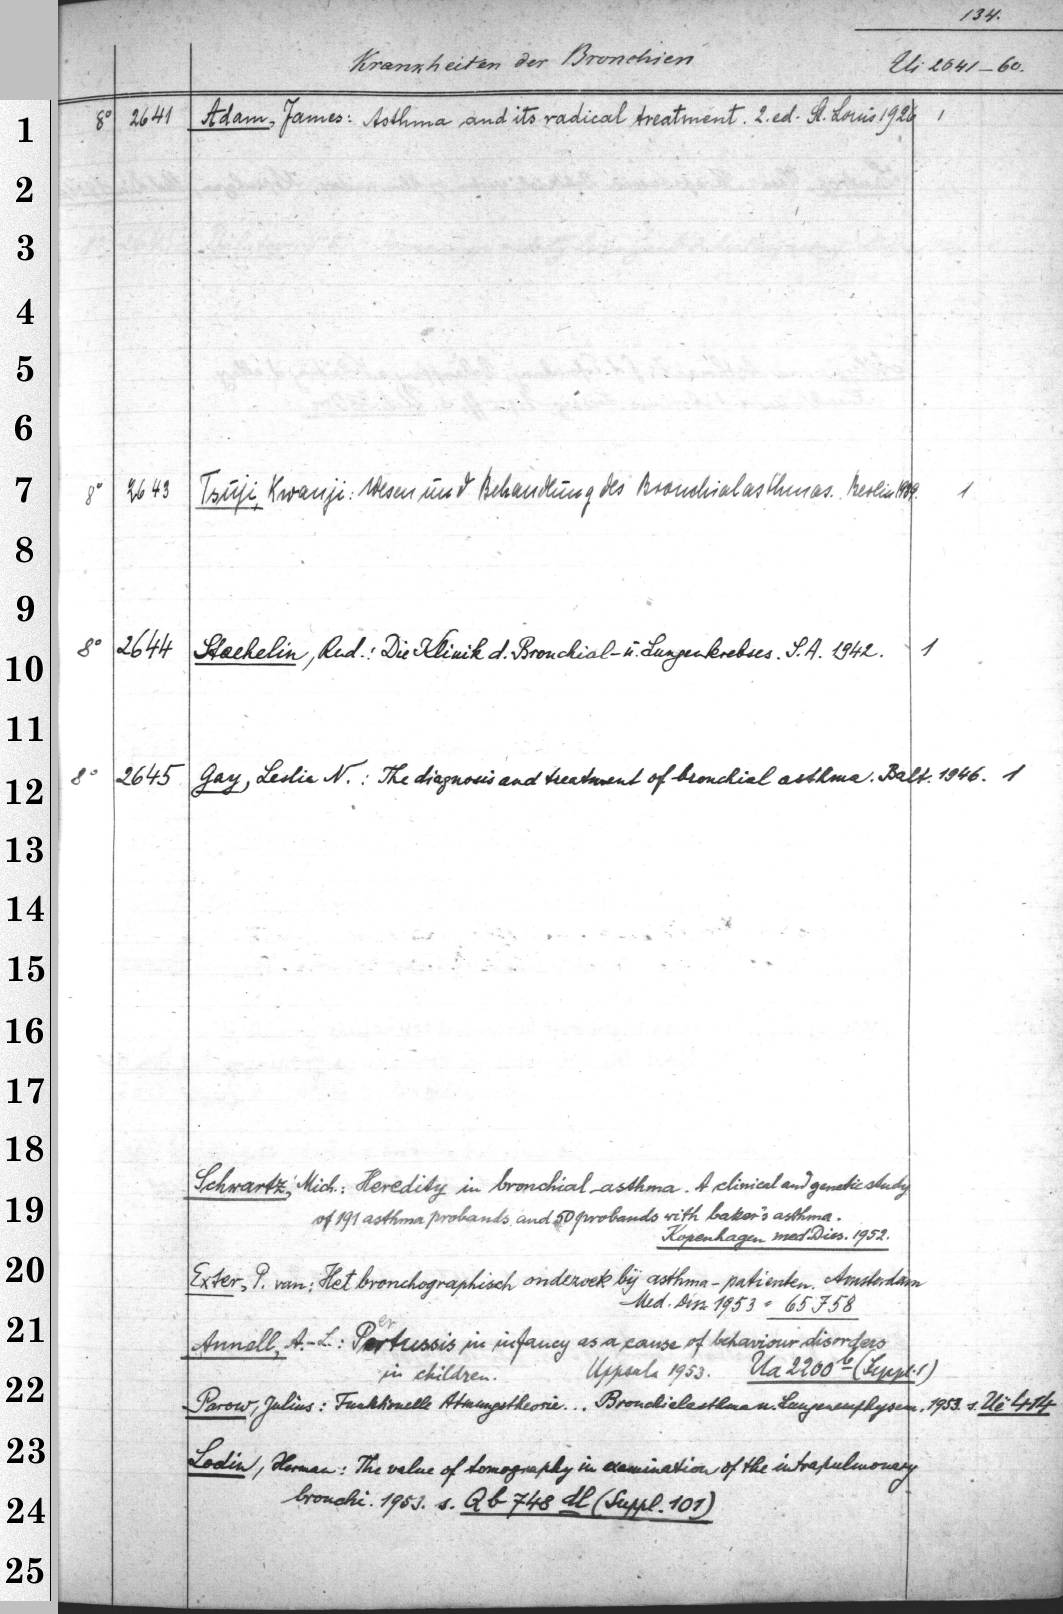 134.
Krankheiten der Bronchien Ui 2641-60.
1 8° 2641 Adam, James: Asthma and its radical treatment. 2. ed. St. Louis 1926 1
2
3
4
5
6
7 8° 2643 Tsuji, Kwanji: Wesen und Behandlung des Bronchialasthmas. Berlin 1939. 1
8
9
10 8° 2644 Staehelin, Rud.: Die Klinik d. Bronchial- u. Lungenkrebses. S.A. 1942. 1
11
12 8° 2645 Gay, Leslie N.: The diagnosis and treatment of bronchial asthma. Balt. 1946. 1
13
14
15
16
17
18
Schwartz, Mich.: Heredity in bronchial asthma. A clinical and genetic study
19 of 191 asthma probands and 50 probands with baker's asthma.
Kopenhagen med. Diss. 1952.
20 Exter, P. van: Het bronchographisch onderzoek bij asthma-patienten. Amsterdam
Med. Diss 1953 = 65 F 58
21 Annell, A.-L.: Pertussis in infancy as a cause of behaviour disorders
in children. Uppsala 1953. Ua 2200 (Suppl. 1)
22 Parow, Julius: Funktionelle Atmungstherapie... Bronchialasthma u. Lungenemphysem. 1953. s. Ue 414
23 Lodin, Herman: The value of tomography in examination of the intrapulmonary
24 bronchi. 1953. s. Qb 748 dl (Suppl. 101)
25